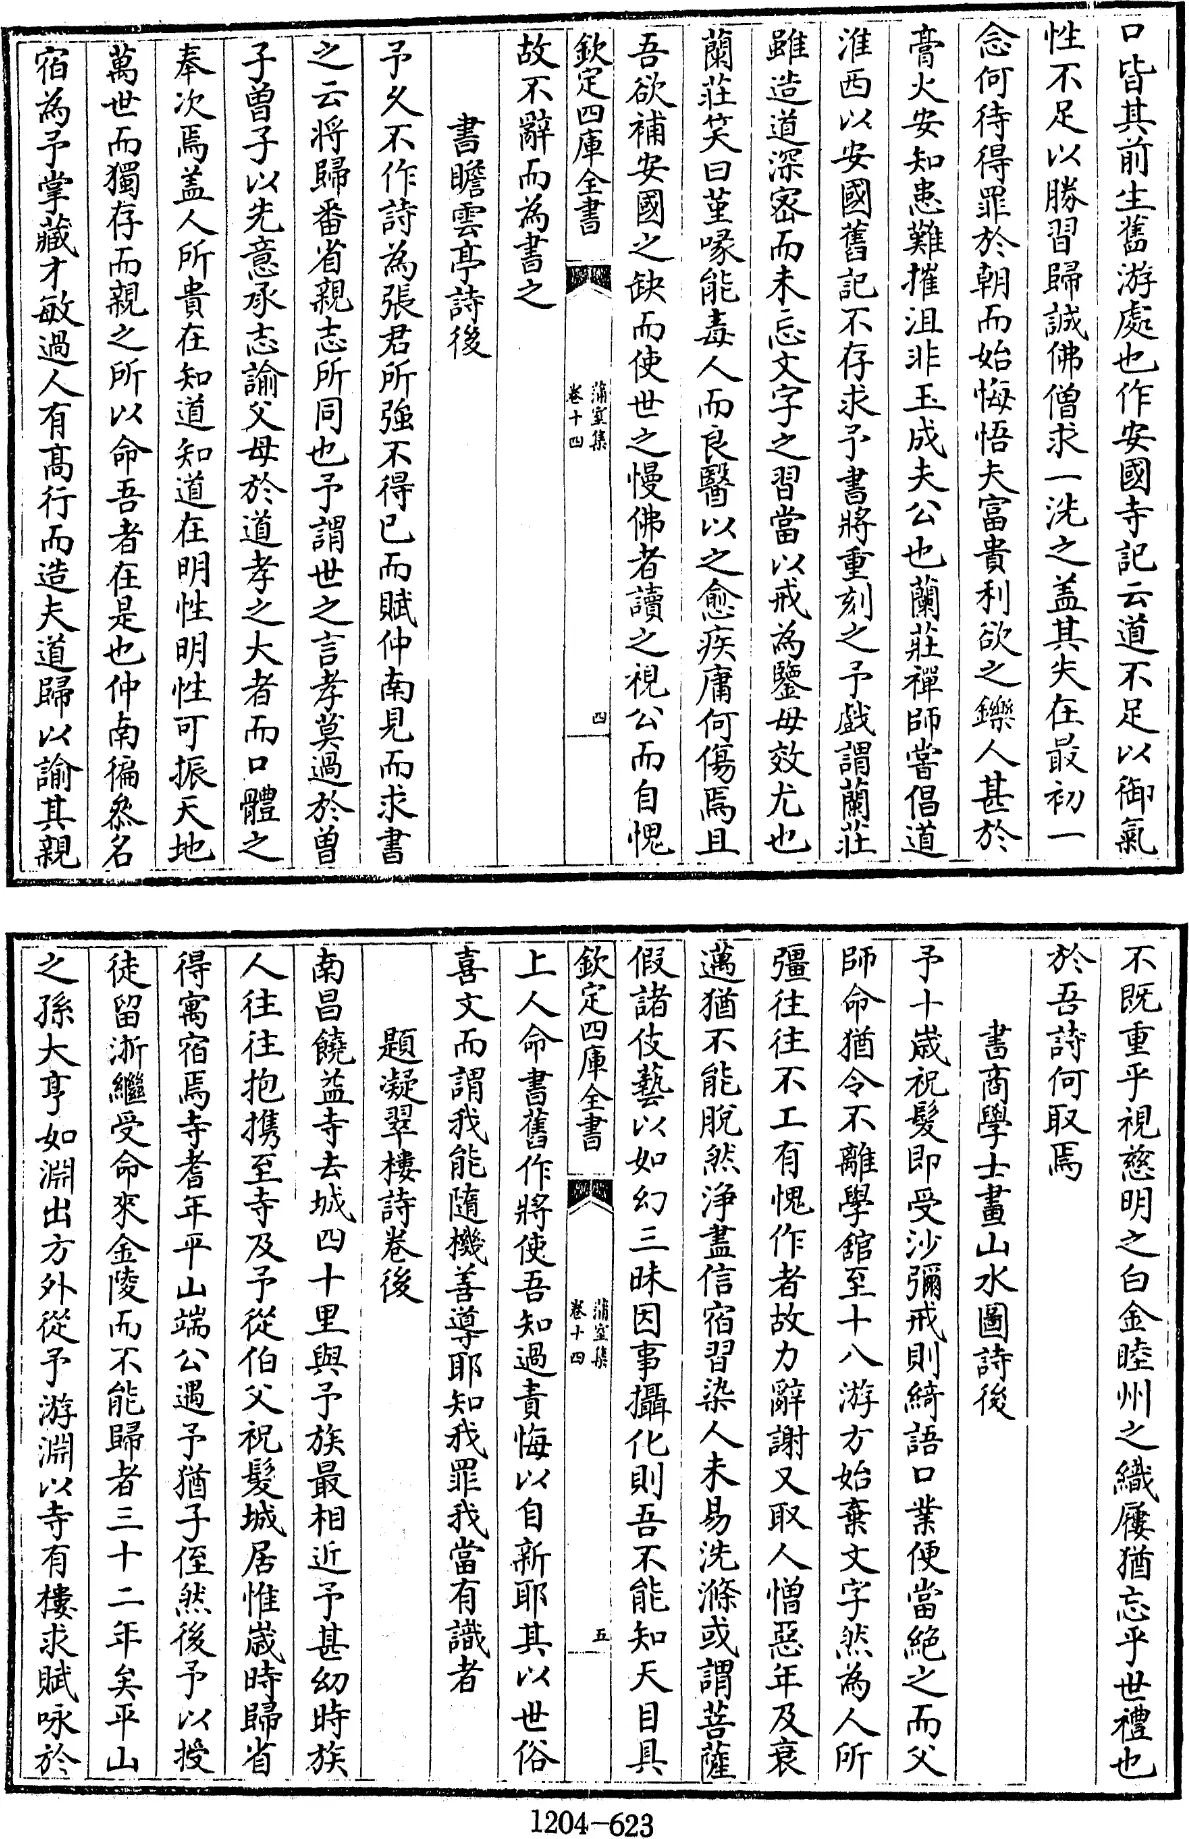 口皆其前生舊游處也作安國寺記云道不足以御氣
性不足以勝習歸誠佛僧求一洗之盖其失在最初一
念何待得罪於朝而始悔悟夫富貴利欲之鑠人甚於
膏火安知患難摧沮非玉成夫公也蘭莊禪師嘗倡道
淮西以安國舊記不存求予書將重刻之予戲謂蘭莊
雖造道深密而未忘文字之習當以戒為鑒毋效尤也
蘭莊笑曰堇喙能毒人而良醫以之愈疾庸何傷焉且
吾欲補安國之缺而使世之慢佛者讀之視公而自愧
欽定四庫全書
蒲室集
卷十四
四
故不辭而為書之
書瞻雲亭詩後
予久不作詩為張君所強不得已而賦仲南見而求書
之云將歸番省親志所同也予謂世之言孝莫過於曾
子曾子以先意承志諭父母於道孝之大者而口體之
奉次焉盖人所貴在知道知道在明性明性可振天地
萬世而獨存而親之所以命吾者在是也仲南徧叅名
宿為予掌藏才敏過人有髙行而造夫道歸以諭其親
不既重乎視慈明之白金睦州之織屨猶忘乎世禮也
於吾詩何取焉
書商學士畫山水圖詩後
予十歲祝髮即受沙彌戒則綺語口業便當絶之而父
師命猶令不離學舘至十八游方始棄文字然為人所
彊往往不工有愧作者故力辭謝又取人憎惡年及衰
邁猶不能脫然浄盡信宿習染人未易洗滌或謂菩薩
假諸伎藝以如幻三昧因事攝化則吾不能知天目具
欽定四庫全書
蒲室集
卷十四
五
上人命書舊作將使吾知過責悔以自新耶其以世俗
喜文而謂我能隨機善導耶知我罪我當有識者
題凝翠樓詩卷後
南昌饒益寺去城四十里與予族最相近予甚幼時族
人往往抱携至寺及予從伯父祝髮城居惟歲時歸省
得寓宿焉寺耆年平山端公遇予猶子侄然後予以授
徒留浙繼受命來金陵而不能歸者三十二年矣平山
之孫大亨如淵出方外從予游淵以寺有樓求賦咏於
1204-623